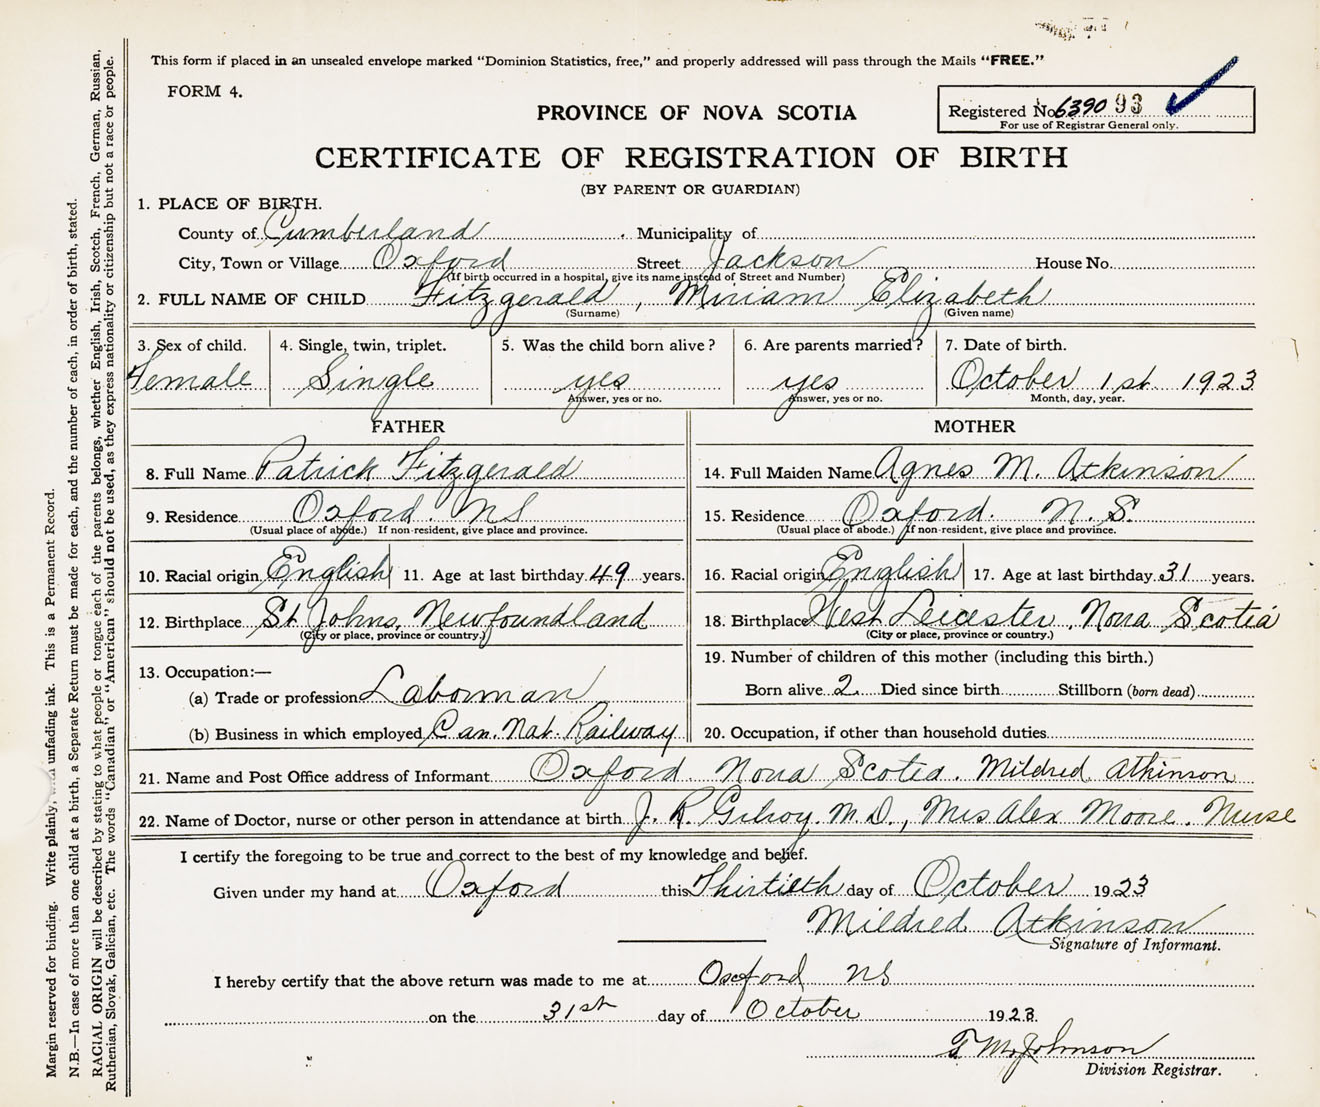 This form if placed in an unsealed envelope marked "Dominion Statistics, free," and properly addressed will pass through the Mails "FREE."
FORM 4.
PROVINCE OF NOVA SCOTIA
Registered No. 6390 93
For use of Registrar General only.
CERTIFICATE OF REGISTRATION OF BIRTH
(BY PARENT OR GUARDIAN)
1. PLACE OF BIRTH.
County of Cumberland Municipality of
City, Town or Village Oxford Street Jackson House No.
(If birth occurred in a hospital, give its name instead of Street and Number)
2. FULL NAME OF CHILD Fitzgerald, Miriam Elizabeth
(Surname) (Given name)
3. Sex of child. 4. Single, twin, triplet. 5. Was the child born alive? 6. Are parents married? 7. Date of birth.
Female Single yes yes October 1st. 1923
Answer, yes or no. Answer, yes or no. Month, day, year.
FATHER MOTHER
8. Full Name Patrick Fitzgerald 14. Full Maiden Name Agnes M. Atkinson
9. Residence Oxford. NS 15. Residence Oxford. N.S.
(Usual place of abode.) If non-resident, give place and province. (Usual place of abode.) If non-resident, give place and province.
10. Racial origin English 11. Age at last birthday 49 years. 16. Racial origin English 17. Age at last birthday 31 years.
12. Birthplace St Johns, Newfoundland 18. Birthplace West Leicester, Nova Scotia
(City or place, province or country.) (City or place, province or country.)
13. Occupation:— 19. Number of children of this mother (including this birth.)
(a) Trade or profession Laborman Born alive 2 Died since birth Stillborn (born dead)
(b) Business in which employed Can. Nat. Railway 20. Occupation, if other than household duties
21. Name and Post Office address of Informant Oxford. Nova Scotia. Mildred Atkinson
22. Name of Doctor, nurse or other person in attendance at birth J. R. Gilroy. M.D., Mrs Alex Moore. Nurse
I certify the foregoing to be true and correct to the best of my knowledge and belief.
Given under my hand at Oxford this Thirtieth day of October 1923
Mildred Atkinson
Signature of Informant.
I hereby certify that the above return was made to me at Oxford NS
on the 31st day of October 1923.
T. M. Johnson
Division Registrar.
Margin reserved for binding. Write plainly, unfading ink. This is a Permanent Record.
N.B.—In case of more than one child at a birth, a Separate Return must be made for each, and the number of each, in order of birth, stated.
RACIAL ORIGIN will be described by stating to what people or tongue each of the parents belongs, whether English, Irish, Scotch, French, German, Russian,
Ruthenian, Slovak, Galician, etc. The words "Canadian" or "American" should not be used, as they express nationality or citizenship but not a race or people.